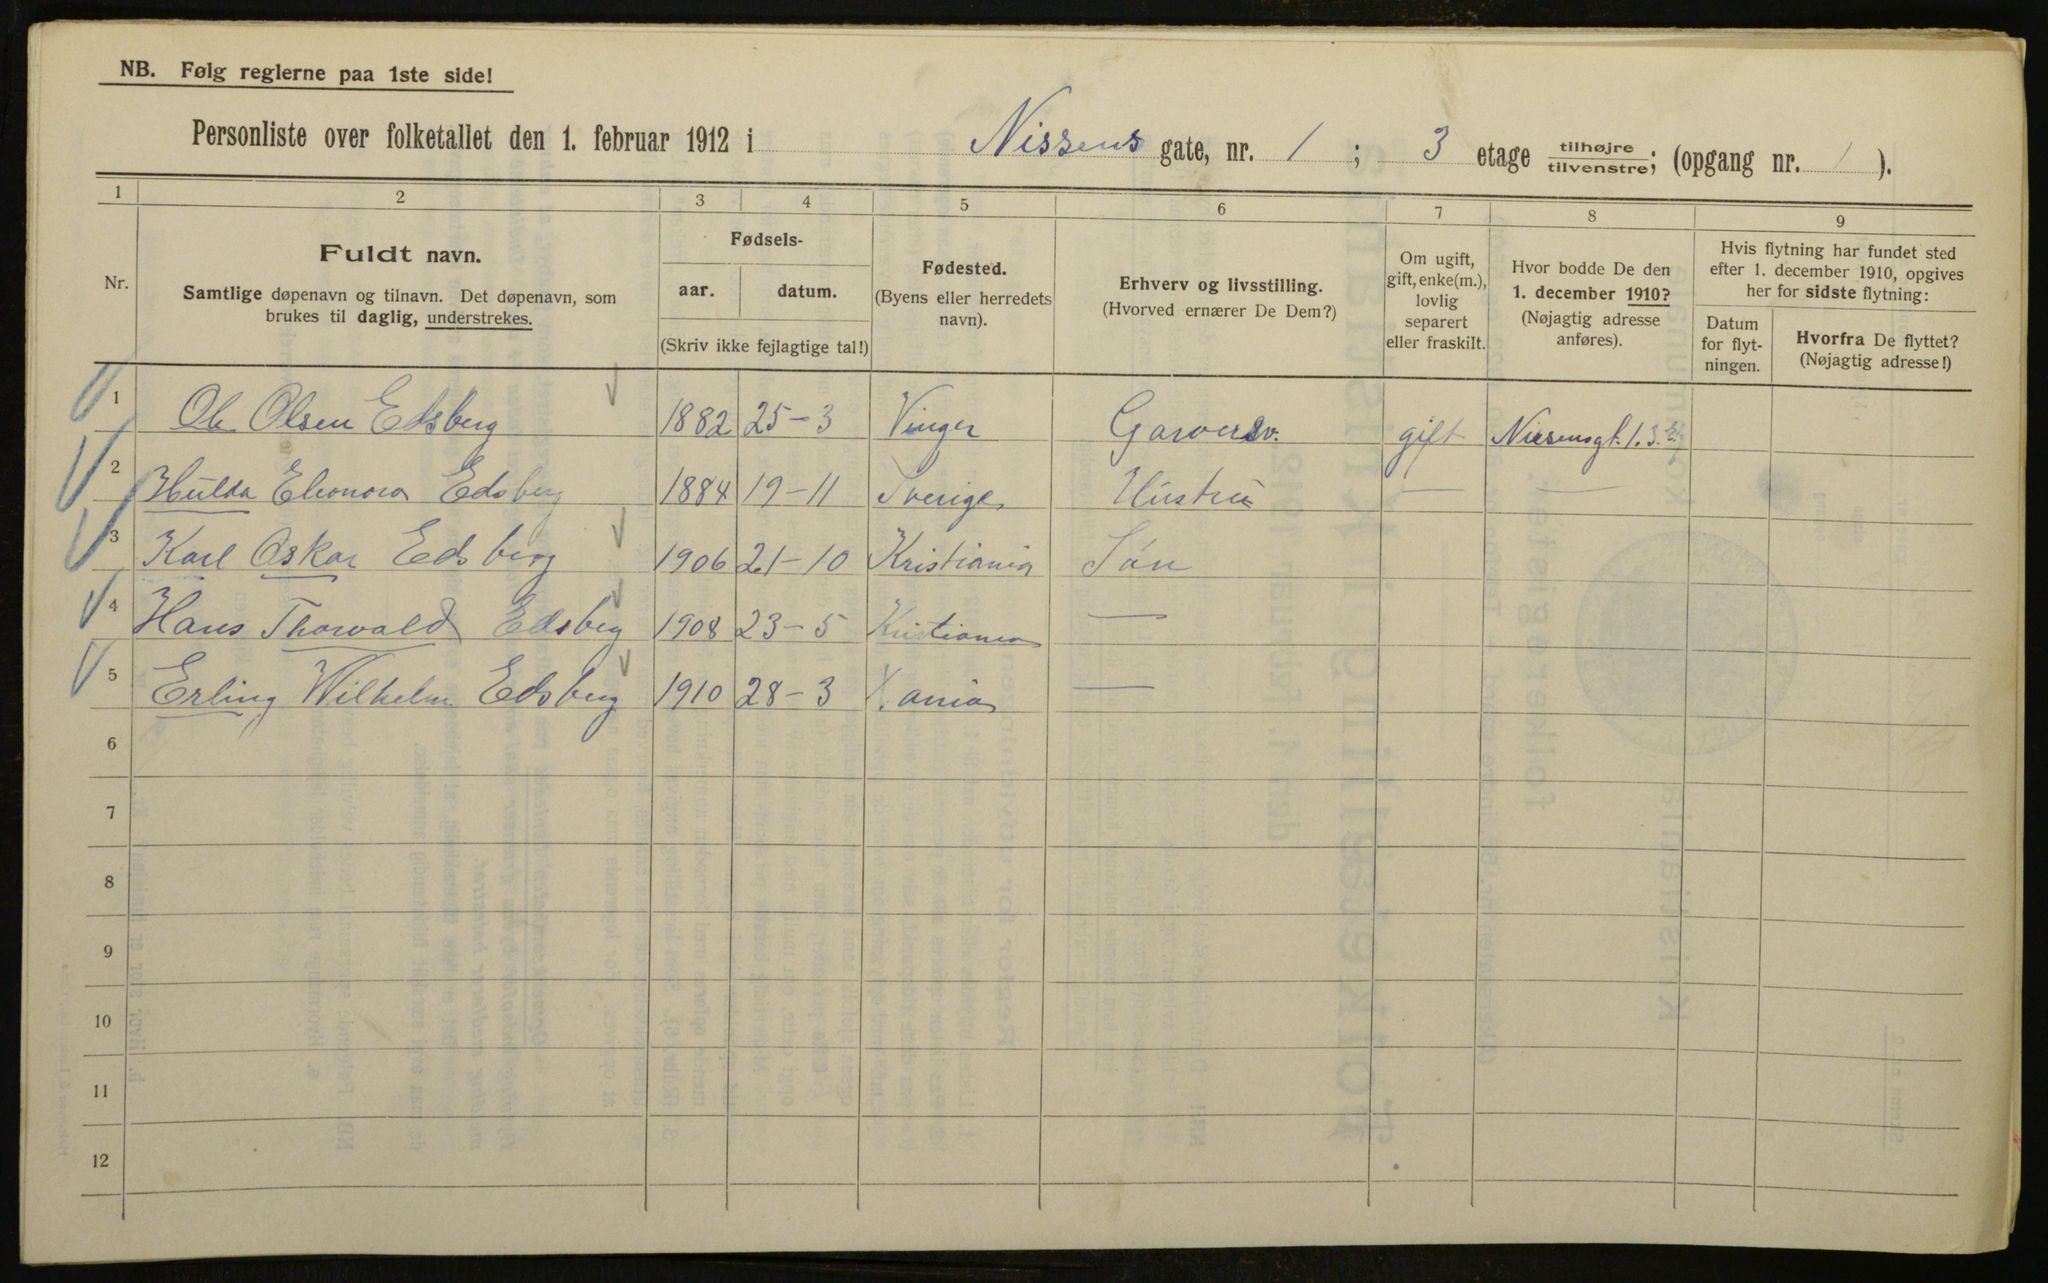 NB. Følg reglerne paa 1ste side!
Personliste over folketallet den 1. februar 1912 i Nissens gate, nr. 1 ; 3 etage tilhøjre tilvenstre; (opgang nr. 1 ).
1 2 3 4 5 6 7 8 9
Nr.
Fuldt navn.
Samtlige døpenavn og tilnavn. Det døpenavn, som
brukes til daglig, understrekes.
Fødsels-
aar. datum.
(Skriv ikke fejlagtige tal!)
Fødested.
(Byens eller herredets
navn).
Erhverv og livsstilling.
(Hvorved ernærer De Dem?)
Om ugift,
gift, enke(m.),
lovlig
separert
eller fraskilt.
Hvor bodde De den
1. december 1910?
(Nøjagtig adresse
anføres).
Hvis flytning har fundet sted
efter 1. december 1910, opgives
her for sidste flytning:
Datum
for flyt-
ningen.
Hvorfra De flyttet?
(Nøjagtig adresse!)
1 Ole Olsen Edsberg 1882 25-3 Vinger Garversv. gift Nissensgt. 1. 3.
2 Hulda Eleonora Edsberg 1884 19-11 Sverige Hustru — —
3 Karl Oskar Edsberg 1906 21-10 Kristiania Søn
4 Hans Thorvald Edsberg 1908 23-5 Kristiania —
5 Erling Wilhelm Edsberg 1910 28-3 X.ania —
6
7
8
9
10
11
12